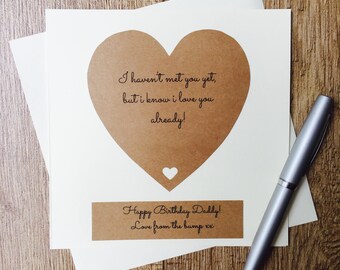 I haven't met you yet,
but i know i love you
already!
Happy Birthday Daddy!
Love from the bump xx